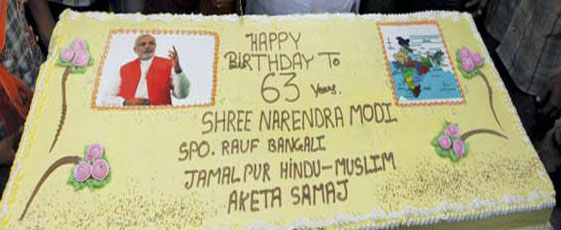 HAPPY
BIRTHDAY TO
63 Years.
SHREE NARENDRA MODI
SPO. RAUF BANGALI
JAMALPUR HINDU-MUSLIM
AKETA SAMAJ